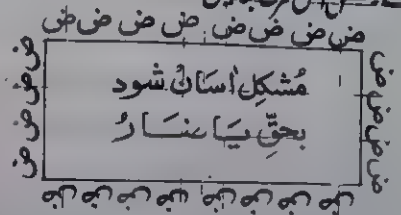 ض ض ض ض ض ض ض ض
ض ض ض ض
مُشکِل اٰسَانْ شود
بحقِّ یَا
ض ض ض ض
ض ض ض ض ض ض ض ض